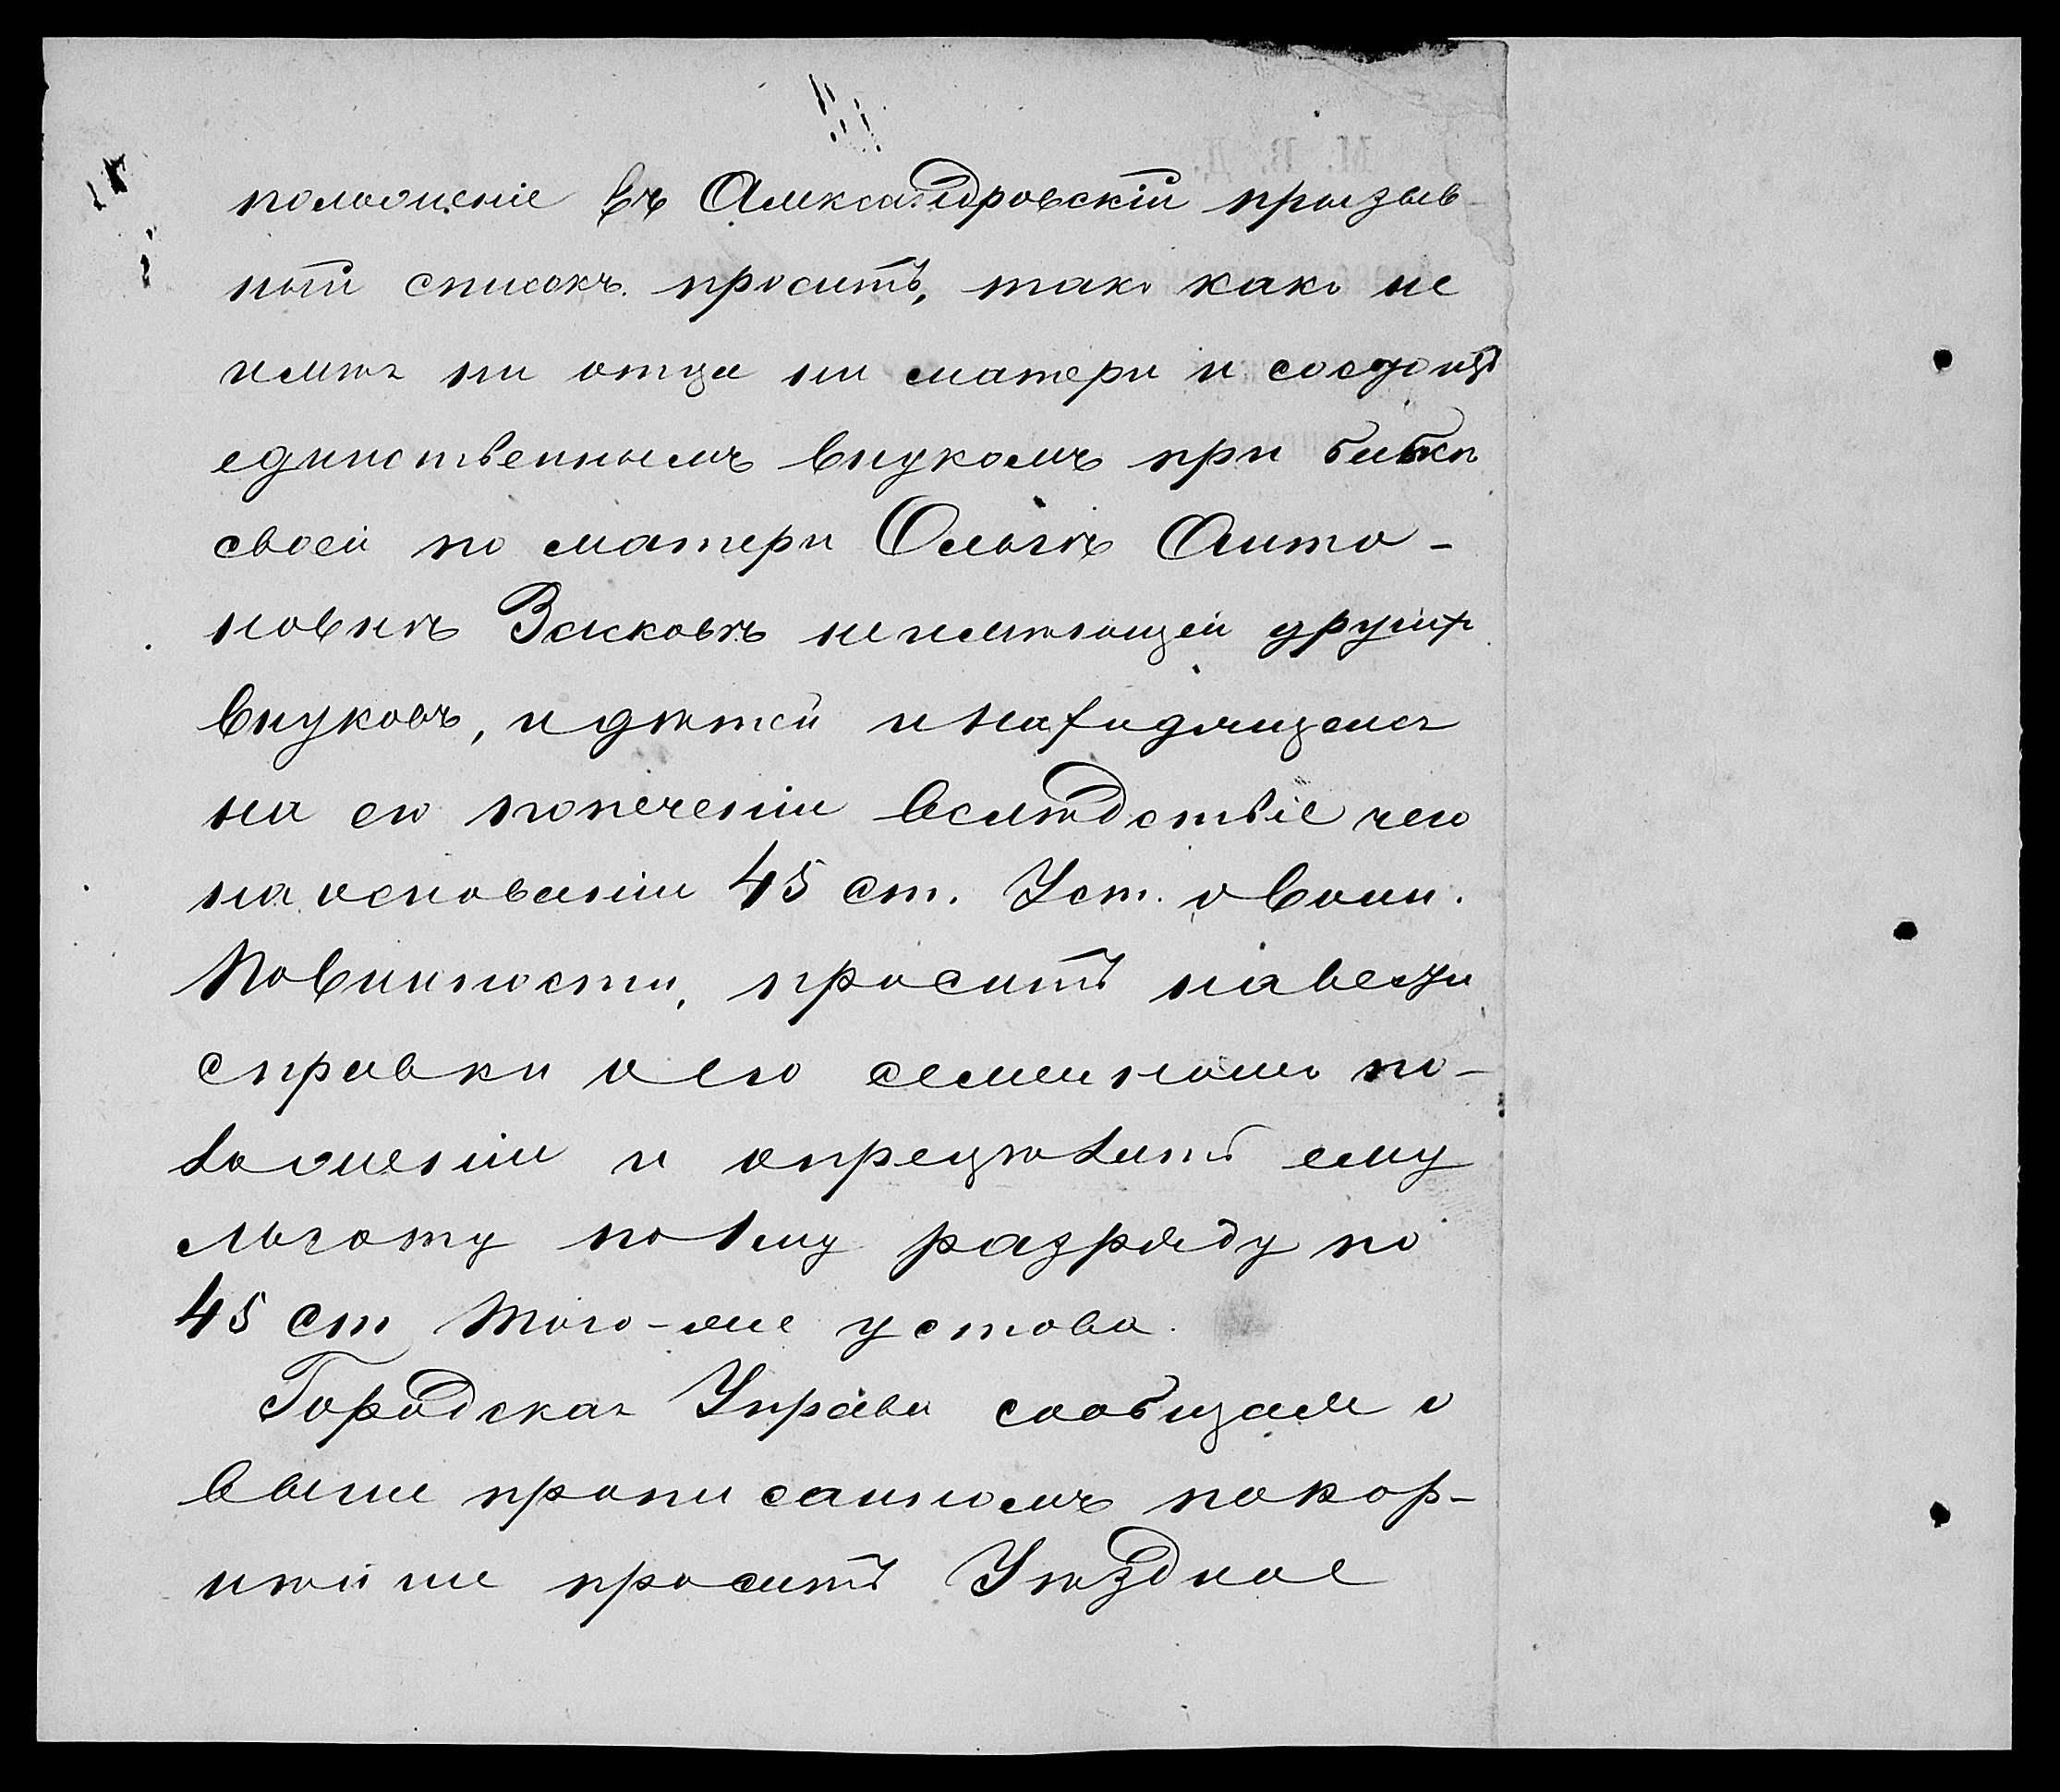 положеніе въ Александровскій призыв
ный списокъ просить, такъ какъ не
имѣя ни отца ни матери и состоитъ
единственнымъ внукомъ при бабкѣ
своей по матери Ольгѣ Анто-
новнѣ неимѣющей другихъ
внуковъ, и дѣтей и находящемся
на его попеченіи вслѣдствіе чего
на основаніи 45 ст. Уст. о Воин.
Повинности, просить навести
справки о его семейномъ по-
ложеніи и опредѣлить ему
льготу по 1му разряду по
45 ст того-же устова.
Городская Управа сообщая о
выше прописанномъ покор-
нѣйше просить Уѣздное